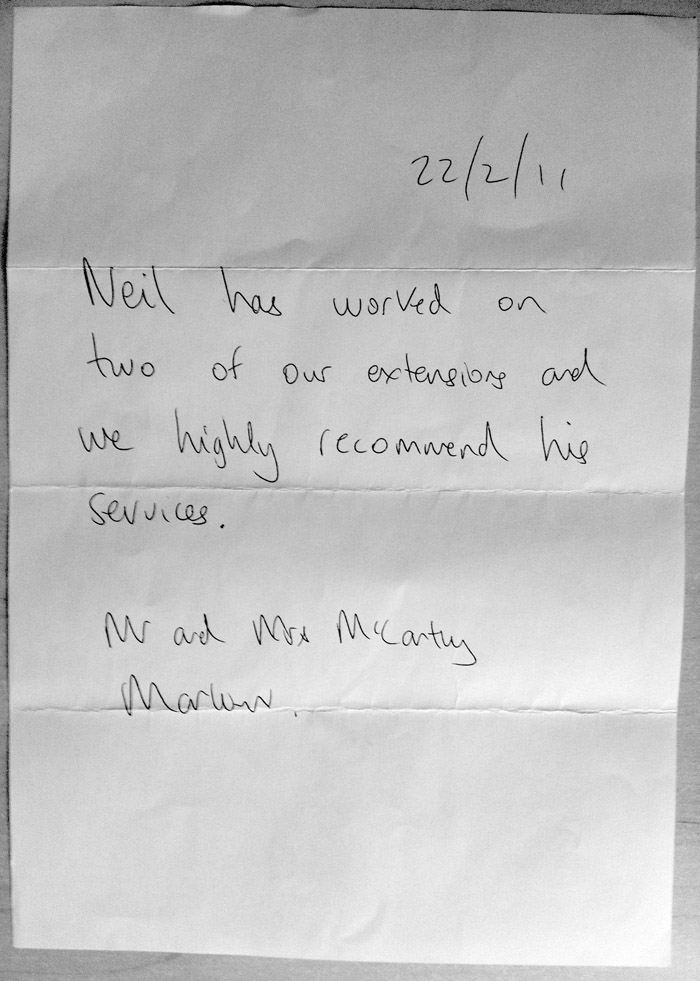 22/2/11
Neil has worked on
two of our extensions and
we highly recommend his
services.
Mr and Mrs McCarthy
Marlow.